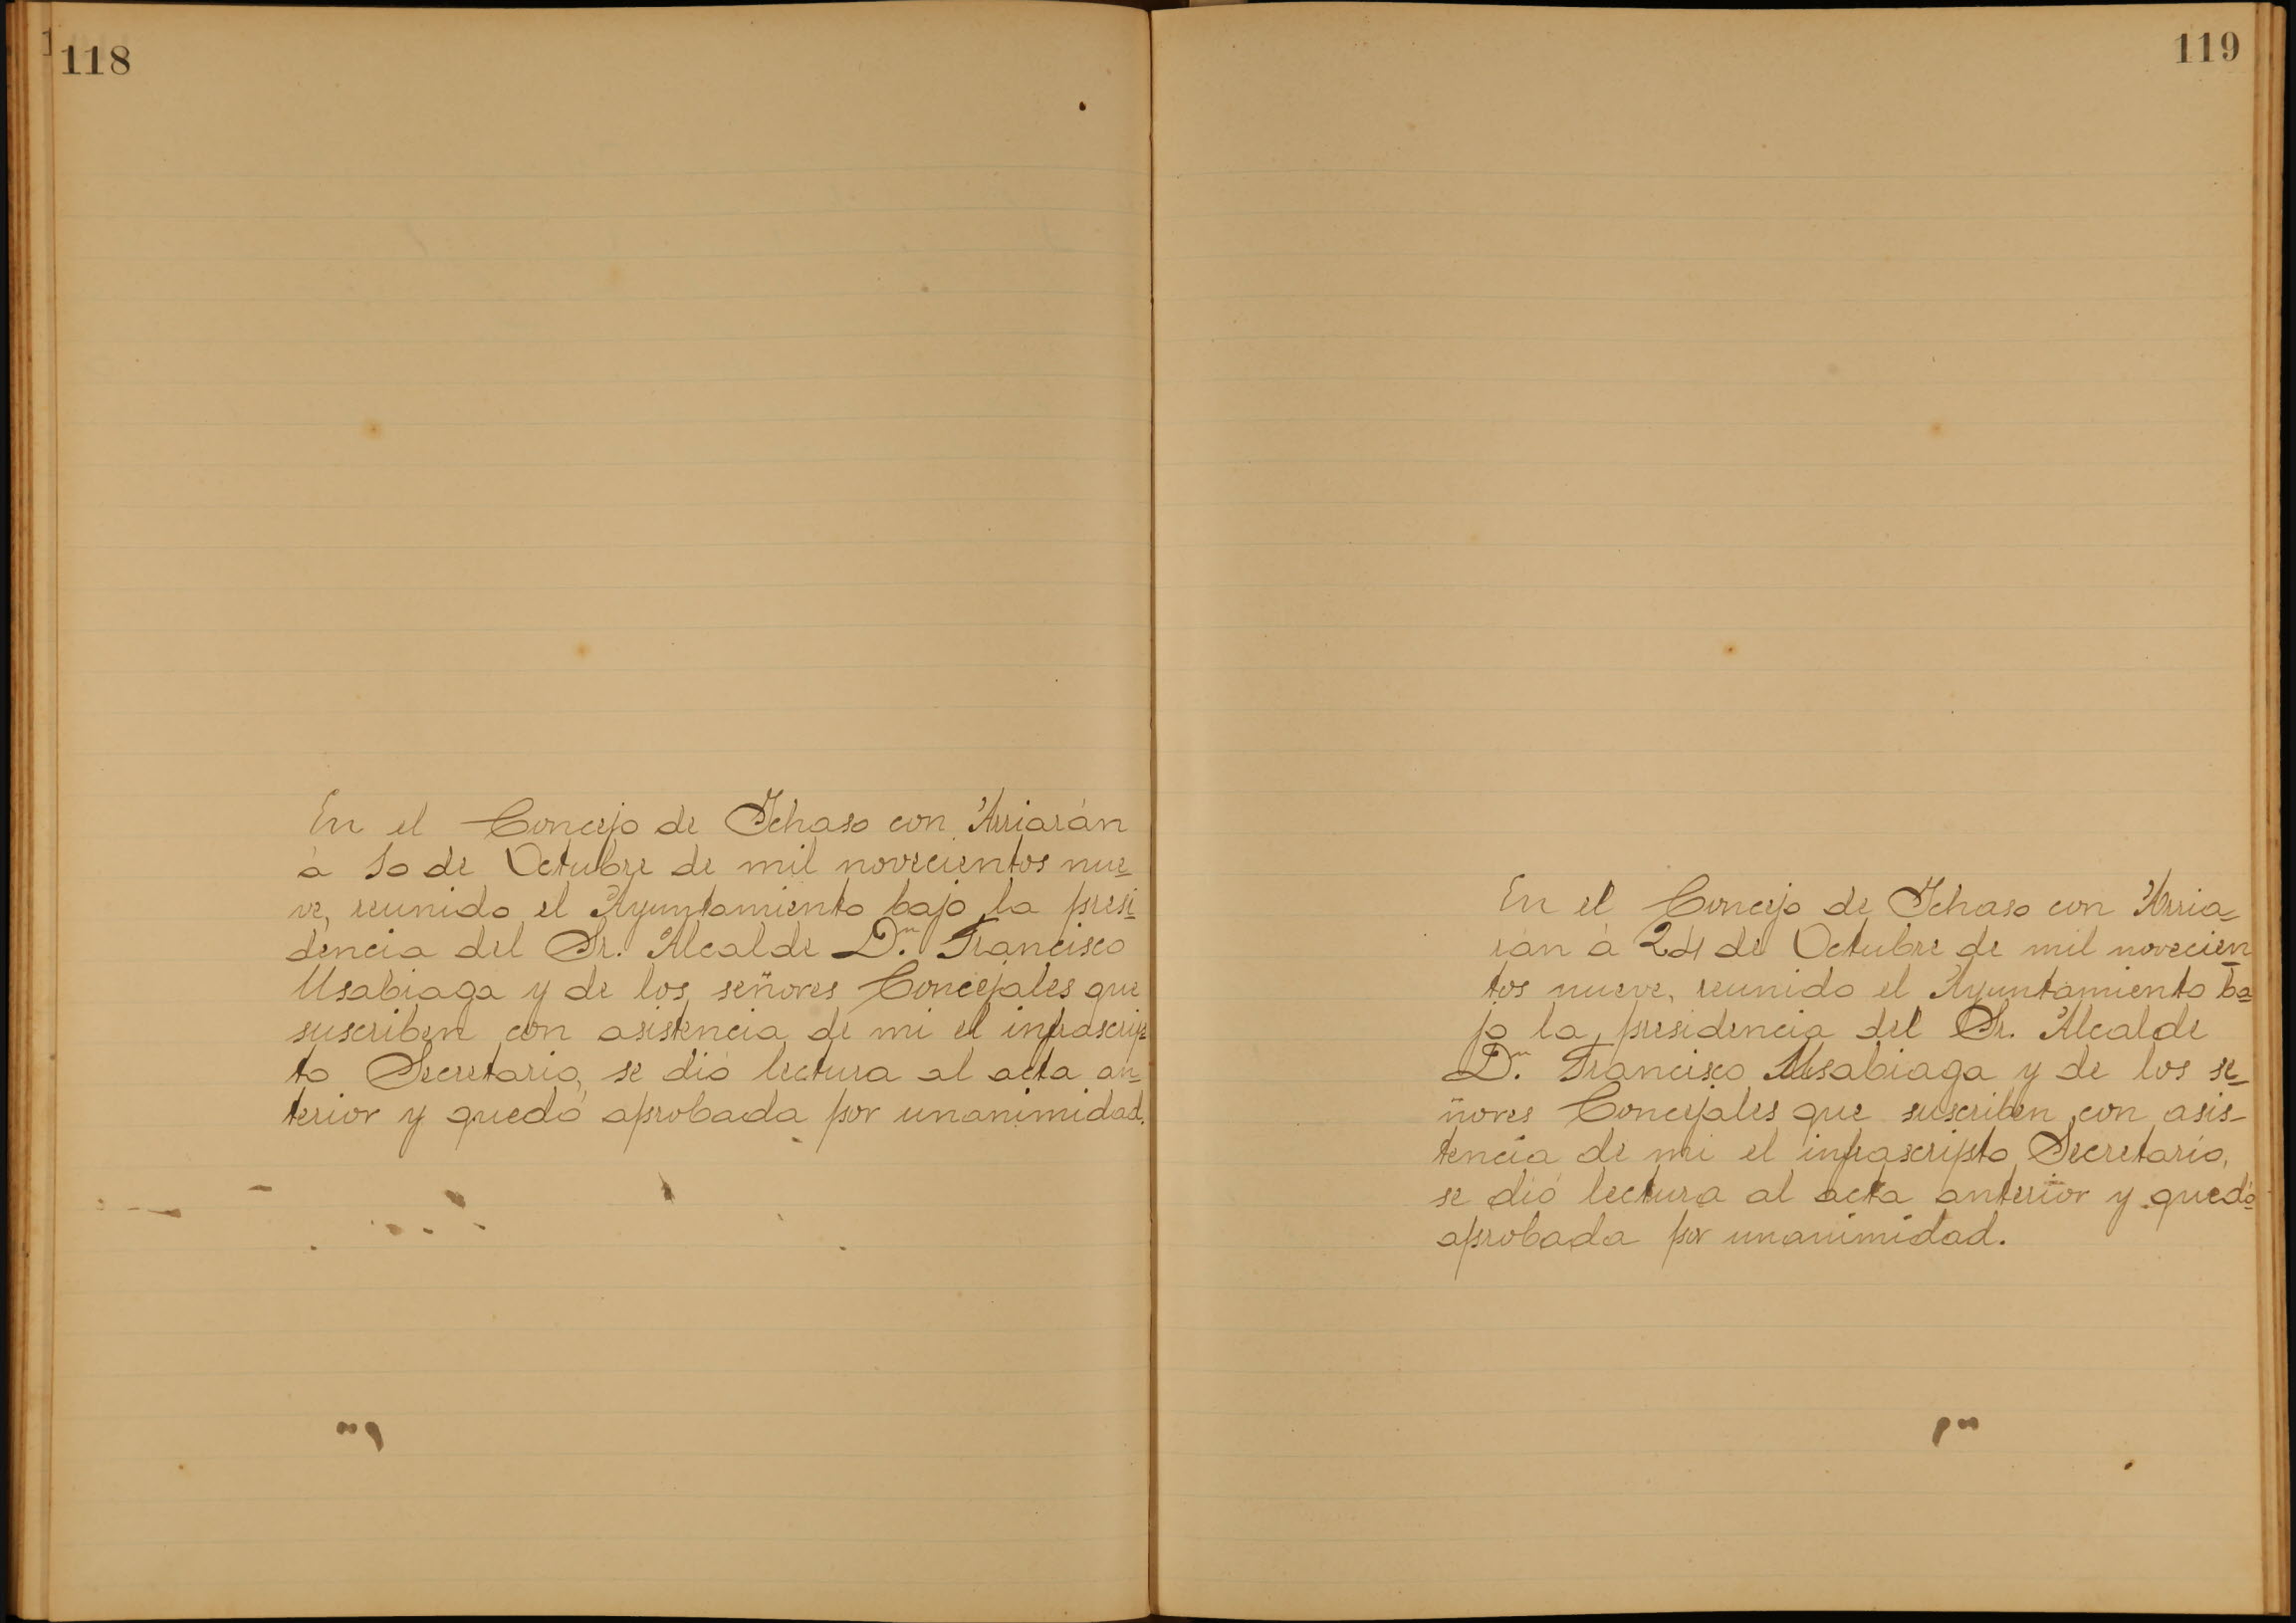 118
En el Concejo de Ichaso con Arriarán
á 10 de Octubre de mil novecientos nue-
ve, reunido el Ayuntamiento bajo la presi-
dencia del Sr. Alcalde Dn. Francisco
Usabiaga y de los señores Concejales que
suscriben con asistencia de mi el infrascrip-
to Secretario, se dió lectura al acta an-
terior y quedó aprobada por unanimidad.
119
En el Concejo de Ichaso con Arria-
rán á 24 de Octubre de mil novecien-
tos nueve, reunido el Ayuntamiento ba-
jo la presidencia del Sr. Alcalde
Dn. Francisco Usabiaga y de los se-
ñores Concejales que suscriben con asis-
tencia de mi el infrascripto Secretario,
se dió lectura al acta anterior y quedó
aprobada por unanimidad.